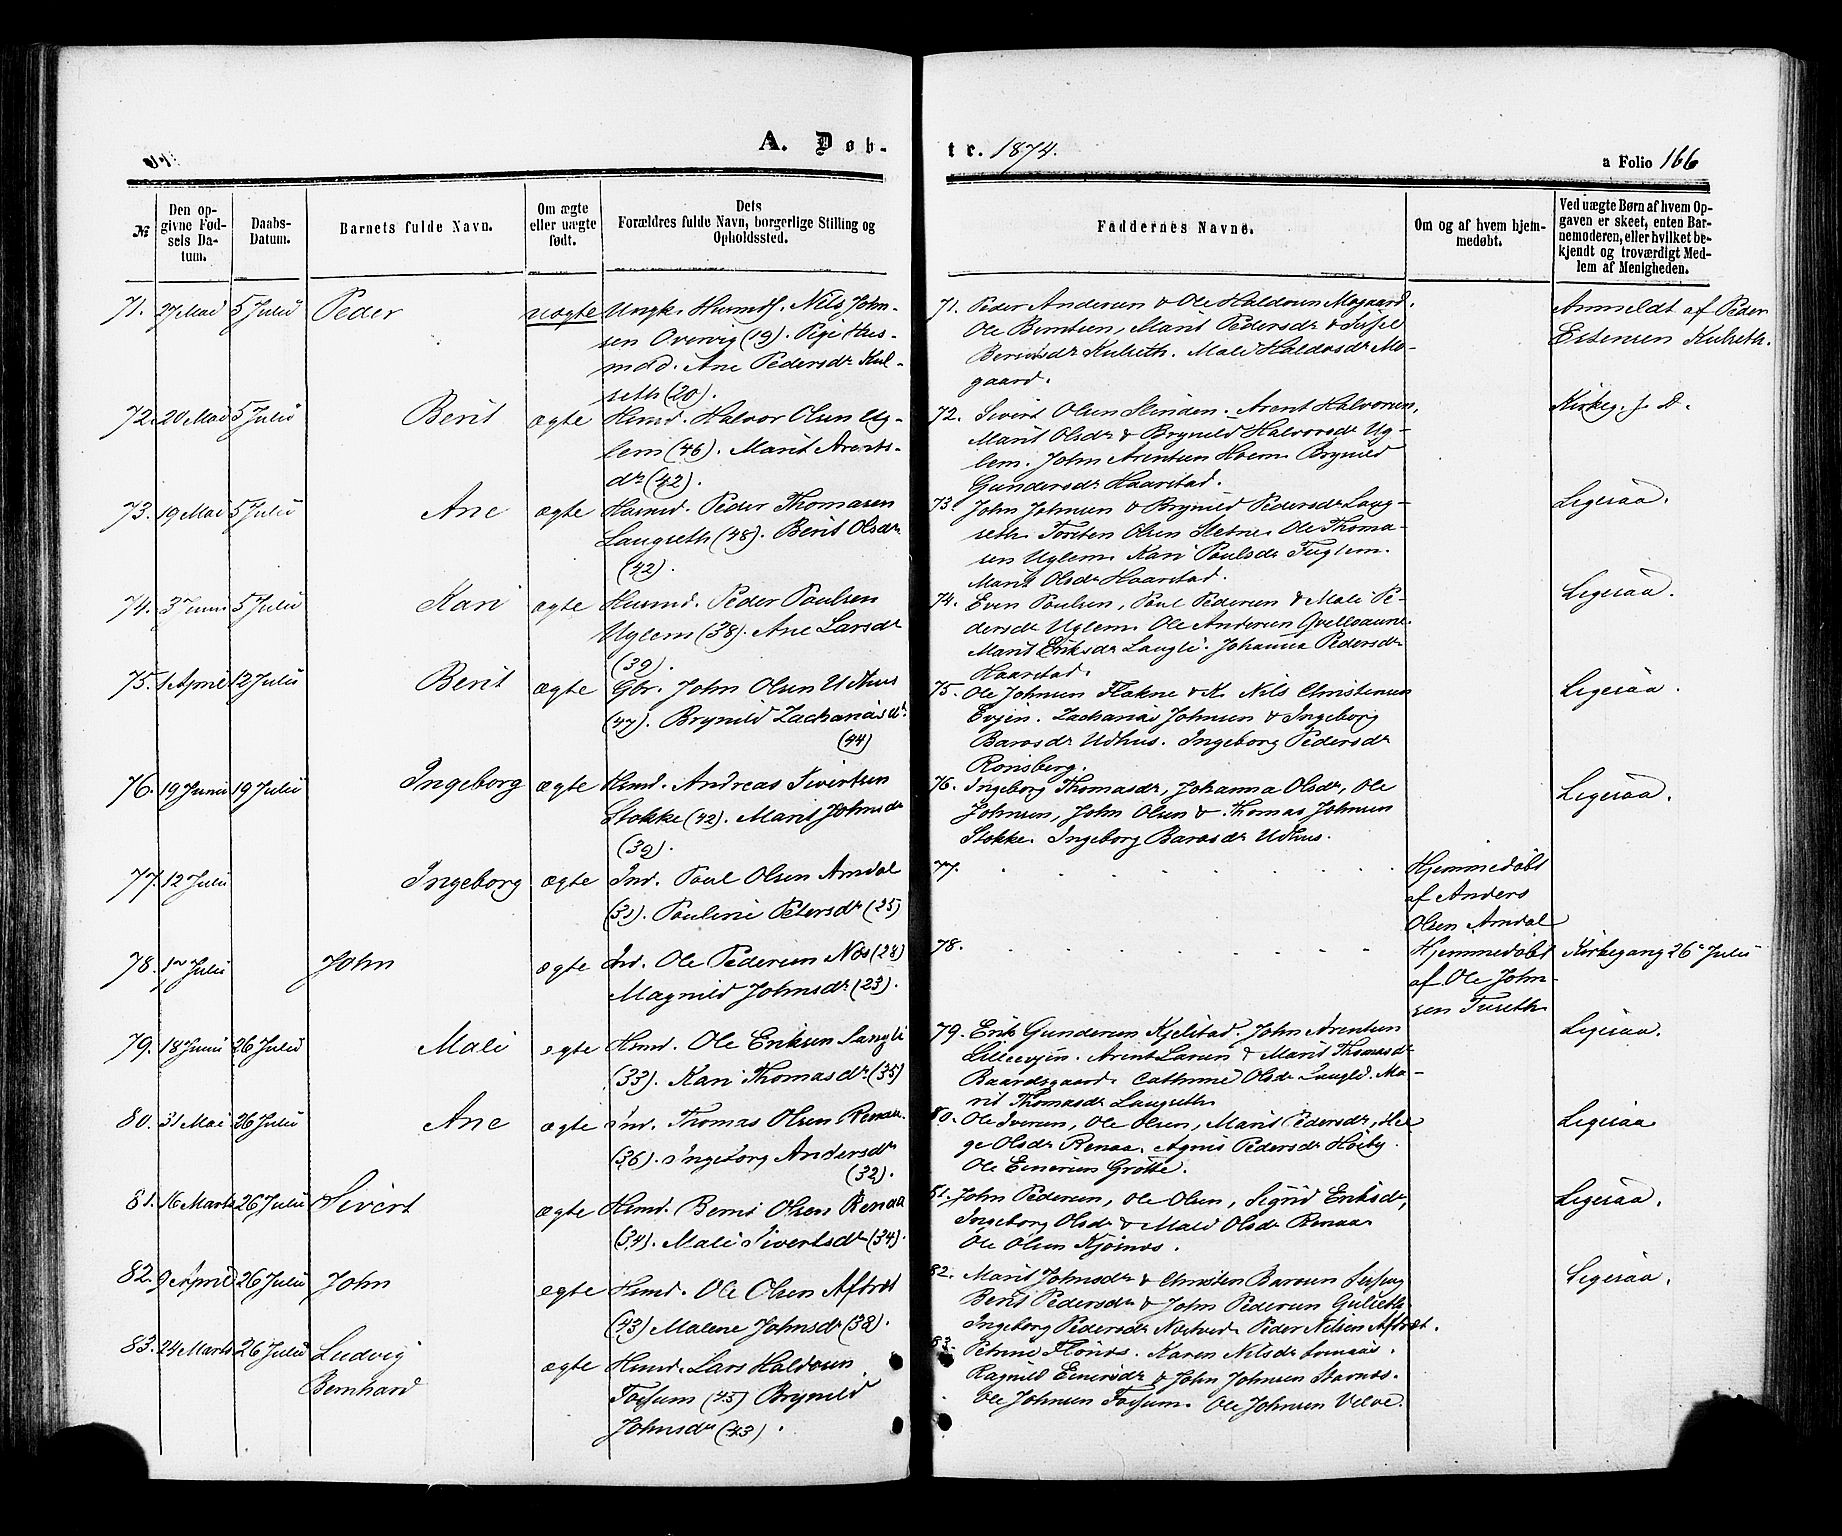 A. Døb-
tr. 1874.
a Folio 166
№
Den op-
givne Fød-
sels Da-
tum.
Daabs-
Datum.
Barnets fulde Navn.
Om ægte
eller uægte
født.
Dets
Forældres fulde Navn, borgerlige Stilling og
Opholdssted.
Faddernes Navne.
Om og af hvem hjem-
medøbt.
Ved uægte Børn af hvem Op-
gaven er skeet, enten Bar-
nemoderen, eller hvilket be-
kjendt og troværdigt Med-
lem af Menigheden.
71. 27 Mai 5 Julii Peder uægte Ungk. Husmdsf. Nils John-
sen Overvig (19). Pige Hus-
md.d. Ane Pedersdr Kul-
seth (20).
71. Peder Andersen & Ole Haldosen Mogaard.
Ole Berntsen, Marit Pedersdr & Sissel
Berntsdr Kulseth. Mali Haldosdr Mo-
gaard.
Anmeldt af Peder
Estensen Kulseth.
72. 20 Mai 5 Julii Berit ægte Husmd. Halvor Olsen Ug-
lem (46). Marit Arents-
dr (42).
72. Sivert Olsen Slinden. Arent Halvorsen,
Marit Olsdr & Brynild Halvorsdr Ug-
lem. John Arentsen Hoem. Brynild
Gundersdr Haarstad.
Kirkeg. s. D.
73. 19 Mai 5 Julii Ane ægte Husmd. Peder Thomasen
Langseth (48). Berit Olsdr
(42).
73. John Johnsen & Brynild Pedersdr Lang-
seth. Torsten Olsen Sletne. Ole Thoma-
sen Uglem. Kari Paulsdr Fuglem.
Marit Olsdr Haarstad.
Ligesaa.
74. 3 Junii 5 Julii Kari ægte Husmd. Peder Paulsen
Uglem (38). Ane Larsdr
(39).
74. Even Paulsen, Paul Pedersen & Mali Pe-
dersdr Uglem. Ole Andersen Qvelloaune.
Marit Eriksdr Langli. Johanna Pedersdr
Haarstad.
Ligesaa.
75. 1 April 12 Julii Berit ægte Gbr. John Olsen Udhus
(47). Brynild Zachariasdr.
(44)
75. Ole Johnsen Flakne & K. Nils Christensen
Evjen. Zacharias Johnsen & Ingeborg
Baroosdr Udhus. Ingeborg Pedersdr
Rønsberg.
Ligesaa.
76. 19 Junii 19 Julii Ingeborg ægte Husmd. Andreas Sivertsen
Stokke (42). Marit Johnsdr
(39).
76. Ingeborg Thomasdr, Johanna Olsdr, Ole
Johnsen, John Olsen & Thomas Johnsen
Stokke. Ingeborg Baroosdr Udhus.
Ligesaa.
77. 12 Julii Ingeborg ægte Ind. Paul Olsen Amdal
(31). Pauline Petersdr (25)
77.
Hjemmedøbt
af Anders
Olsen Amdal
78. 1ste Julii John ægte Ind. Ole Pedersen Næs (28)
Magnild Johnsdr (23).
78.
Hjemmedøbt
af Ole John-
sen Tuseth.
Kirkegang 26de Julii
79. 18 Junii 26 Julii Mali ægte Husmd. Ole Eriksen Langli
(33). Kari Thomasdr (35)
79. Erik Gundersen Kjelstad. John Arentsen
Lilleevjen. Arent Larsen & Marit Thomasdr
Baardsgaard. Cathrine Olsdr Langli. Ma-
rit Thomasdr Langseth
Ligesaa.
80. 31 Mai 26 Julii Ane ægte Ind. Thomas Olsen Renaa
(36). Ingeborg Andersdr
(32).
80. Ole Iversen, Ole Olsen, Marit Pedersdr, Hel-
ge Olsdr Renaa. Agnis Pedersdr Høiby
Ole Einersen Grøtte.
Ligesaa
81. 16 Marts 26 Julii Sivert ægte Husmd. Bernt Olsen Renaa
(34). Mali Sivertsdr (34).
81. John Pedersen, Ole Olsen, Sigrid Eriksdr,
Ingeborg Olsdr & Malid Olsdr Renaa
Ole Olsen Kjøsnæs.
Ligesaa.
82. 9 April 26 Julii John ægte Husmd. Ole Olsen Aftræt
(43) Malene Johnsdr (38).
82. Marit Johnsdr & Christen Baroosen
Berit Pedersdr & John Pedersen Gulseth.
Ingeborg Pedersdr Næstved. Peder Nilsen Aftræt.
Ligesaa.
83. 24 Marts 26 Julii Ludvig
Bernhard
ægte Husmd. Lars Haldosen
Fossum (43) Brynild
Johnsdr (43).
83. Petrine Flønæs. Karen Nilsdr
Ragnild Einersdr & John Johnsen Stamnæs.
Ole Johnsen Fossum. Ole Johnsen Velve.